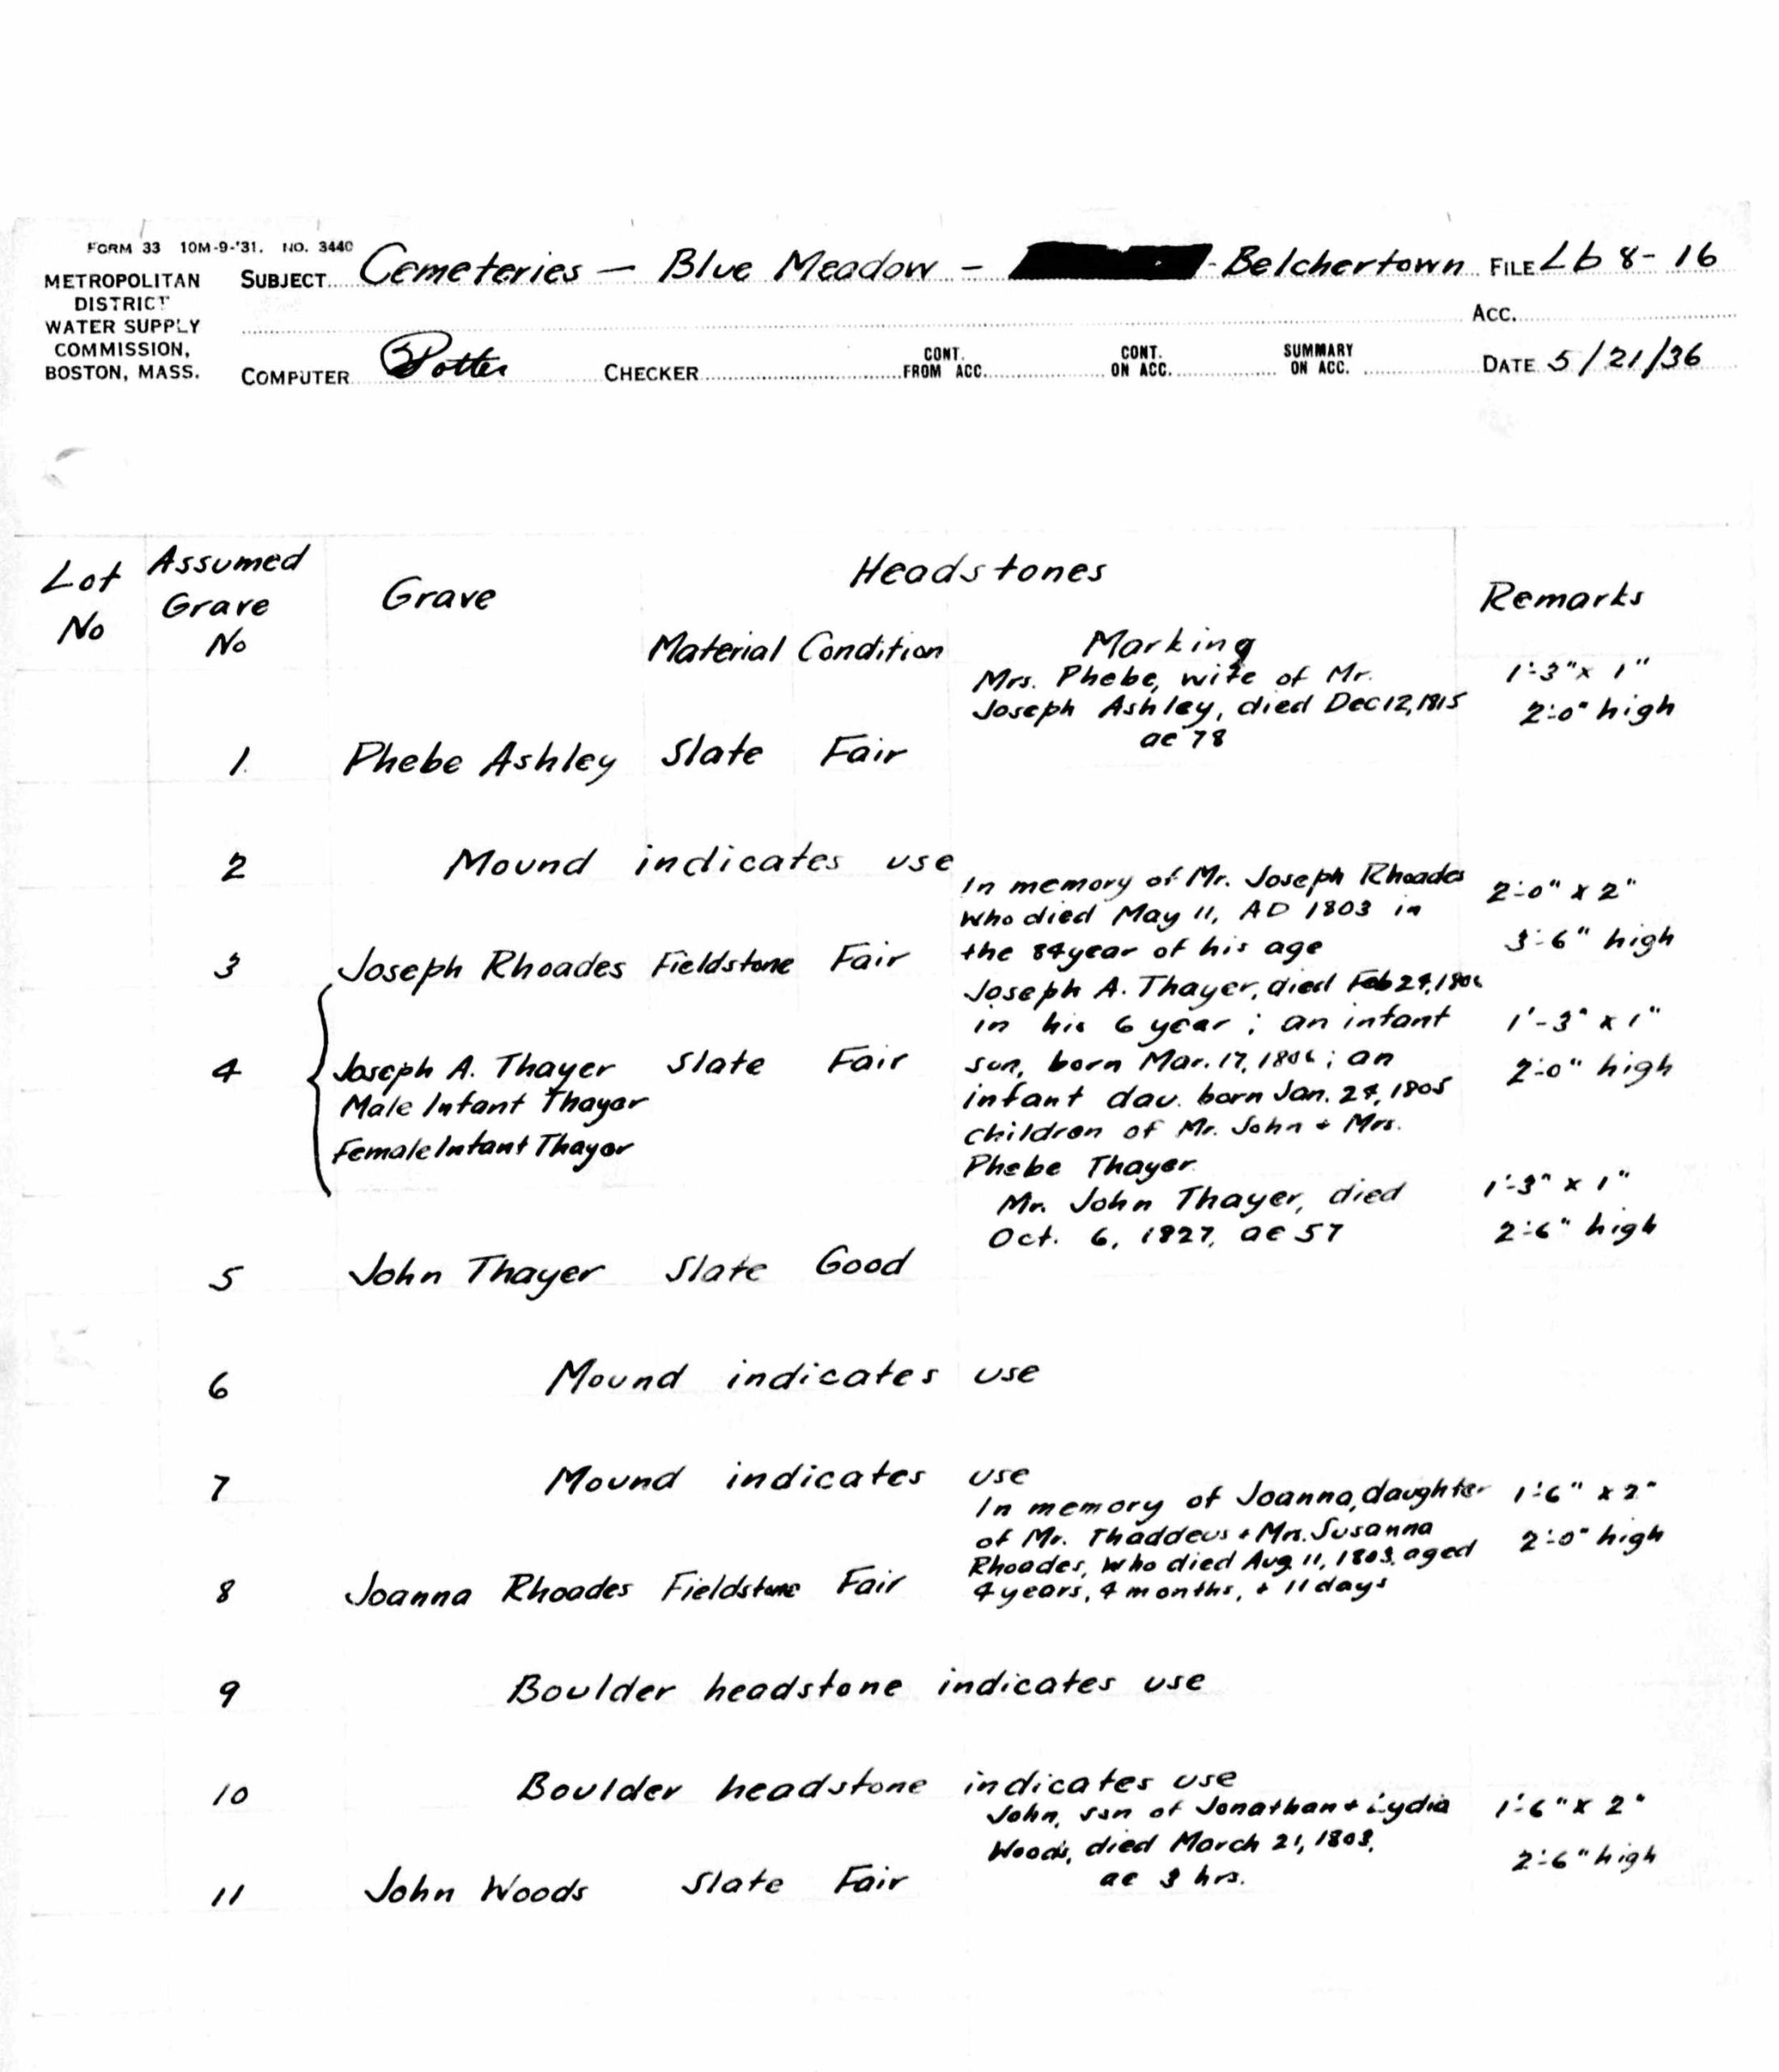 FORM 33 10M-9-'31. NO. 3440
METROPOLITAN
DISTRICT
WATER SUPPLY
COMMISSION,
BOSTON, MASS.
SUBJECT Cemeteries — Blue Meadow - - Belchertown FILE Lb 8-16
ACC.
COMPUTER Potter CHECKER CONT. FROM ACC. CONT. ON ACC. SUMMARY ON ACC. DATE 5/21/36
Lot No
Assumed Grave No
Grave
Headstones
Material Condition Marking
Remarks
1. Phebe Ashley Slate Fair
Mrs. Phebe, wife of Mr.
Joseph Ashley, died Dec 12, 1815
ae 78
1'-3" x 1"
2'-0" high
2 Mound indicates use
3 Joseph Rhoades Fieldstone Fair
In memory of Mr. Joseph Rhoades
who died May 11, AD 1803 in
the 84 year of his age
2'-0" x 2"
3'-6" high
4 Joseph A. Thayer Slate Fair
Male Infant Thayer
Female Infant Thayer
Joseph A. Thayer, died Feb 24, 1806
in his 6 year; an infant
son, born Mar. 17, 1806; an
infant dau. born Jan. 24, 1805
children of Mr. John + Mrs.
Phebe Thayer
1'-3" x 1"
2'-0" high
5 John Thayer Slate Good
Mr. John Thayer, died
Oct. 6, 1827, ae 57
1'-3" x 1"
2'-6" high
6 Mound indicates use
7 Mound indicates use
8 Joanna Rhoades Fieldstone Fair
In memory of Joanna, daughter
of Mr. Thaddeus + Mrs. Susanna
Rhoades, who died Aug. 11, 1803, aged
4 years, 4 months, + 11 days
1'-6" x 2"
2'-0" high
9 Boulder headstone indicates use
10 Boulder headstone indicates use
11 John Woods Slate Fair
John, son of Jonathan + Lydia
Woods, died March 21, 1803,
ae 3 hrs.
1'-6" x 2"
2'-6" high